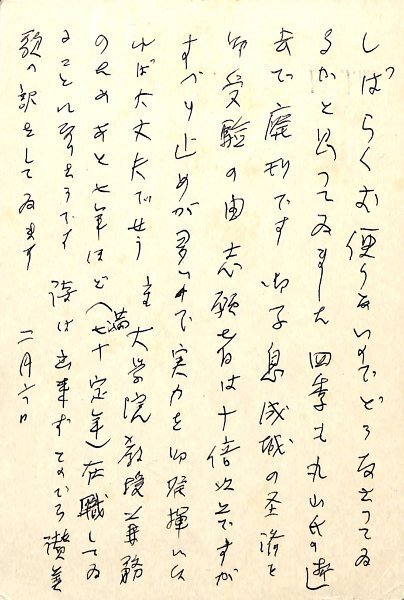 しばらくお便りないのでどうなさつてゐ
るかと思つてゐました 四季も丸山氏の逝
去で廃刊です 御子息成城の 経済を
御受験の由 志願者は十倍以上ですが
すべり止めが多いので実力を御発揮にな
れば大丈夫でせう 大学院教授兼務
のためあと七年ほど(満七十定年)在職してゐ
ることになりさうです 詩は出来ずてのひら讃美
歌の訳をしてゐます 二月六日